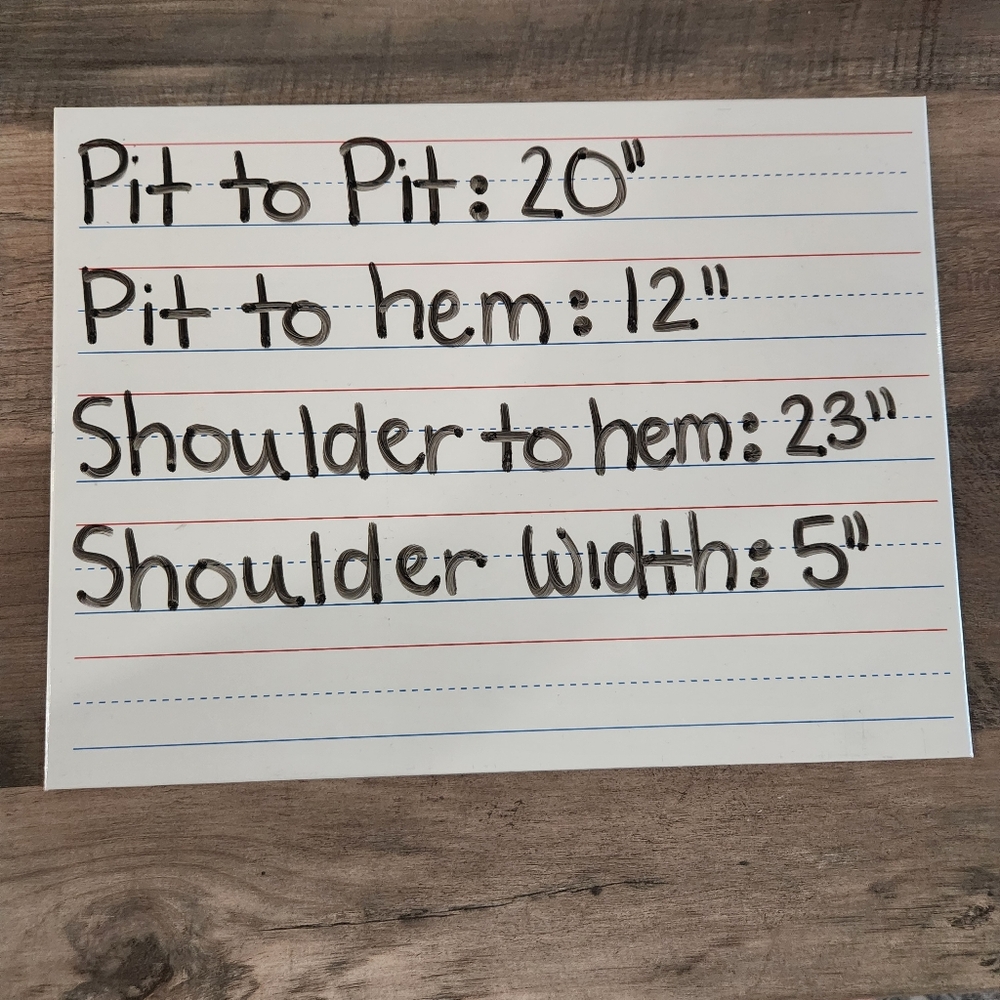 Pit to Pit: 20"
Pit to hem: 12"
Shoulder to hem: 23"
Shoulder Width: 5"